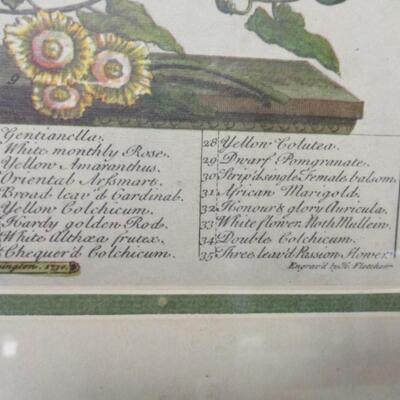 9
Gentianella.
White monthly Rose.
Yellow Amaranthus.
Oriental Arſsmart.
Broad leav'd Cardinal.
Yellow Colchicum.
Hardy golden Rod.
White Althæa frutex.
Chequer'd Colchicum.
28 Yellow Colutea.
29 Dwarf Pomgranate.
30 Strip'd single Female balsom.
31 African Marigold.
32 Honour & glory Auricula.
33 White flower Moth Mullein.
34 Double Colchicum.
35 Three leav'd Passion flower.
sington. 1730.
Engrav'd by H. Fletcher